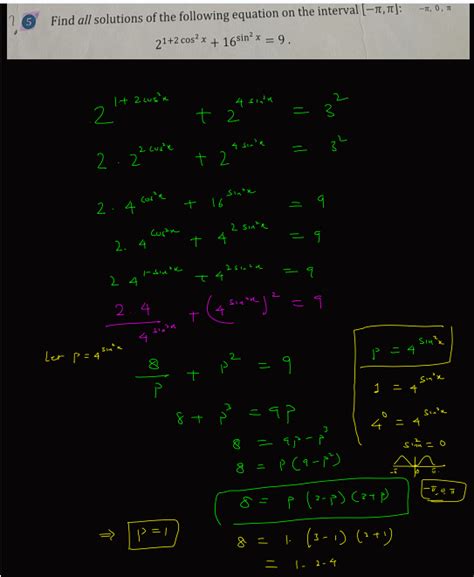 ? 5 Find all solutions of the following equation on the interval [−π, π]: -π, 0, π
2^{1+2cos²x} + 16^{sin²x} = 9.
2^{1+2cos²x} + 2^{4sin²x} = 3²
2 · 2^{2cos²x} + 2^{4sin²x} = 3²
2 · 4^{cos²x} + 16^{sin²x} = 9
2 · 4^{cos²x} + 4^{2sin²x} = 9
2 4^{1-sin²x} + 4^{2sin²x} = 9
2·4/4^{sin²x} + (4^{sin²x})² = 9
Let p = 4^{sin²x}
8/p + p² = 9
8 + p³ = 9p
8 = 9p - p³
8 = p(9-p²)
8 = p (3-p)(3+p)
⇒ p=1
8 = 1· (3-1)(3+1)
= 1·2·4
p = 4^{sin²x}
1 = 4^{sin²x}
4⁰ = 4^{sin²x}
sin²x = 0
-π, 0, π